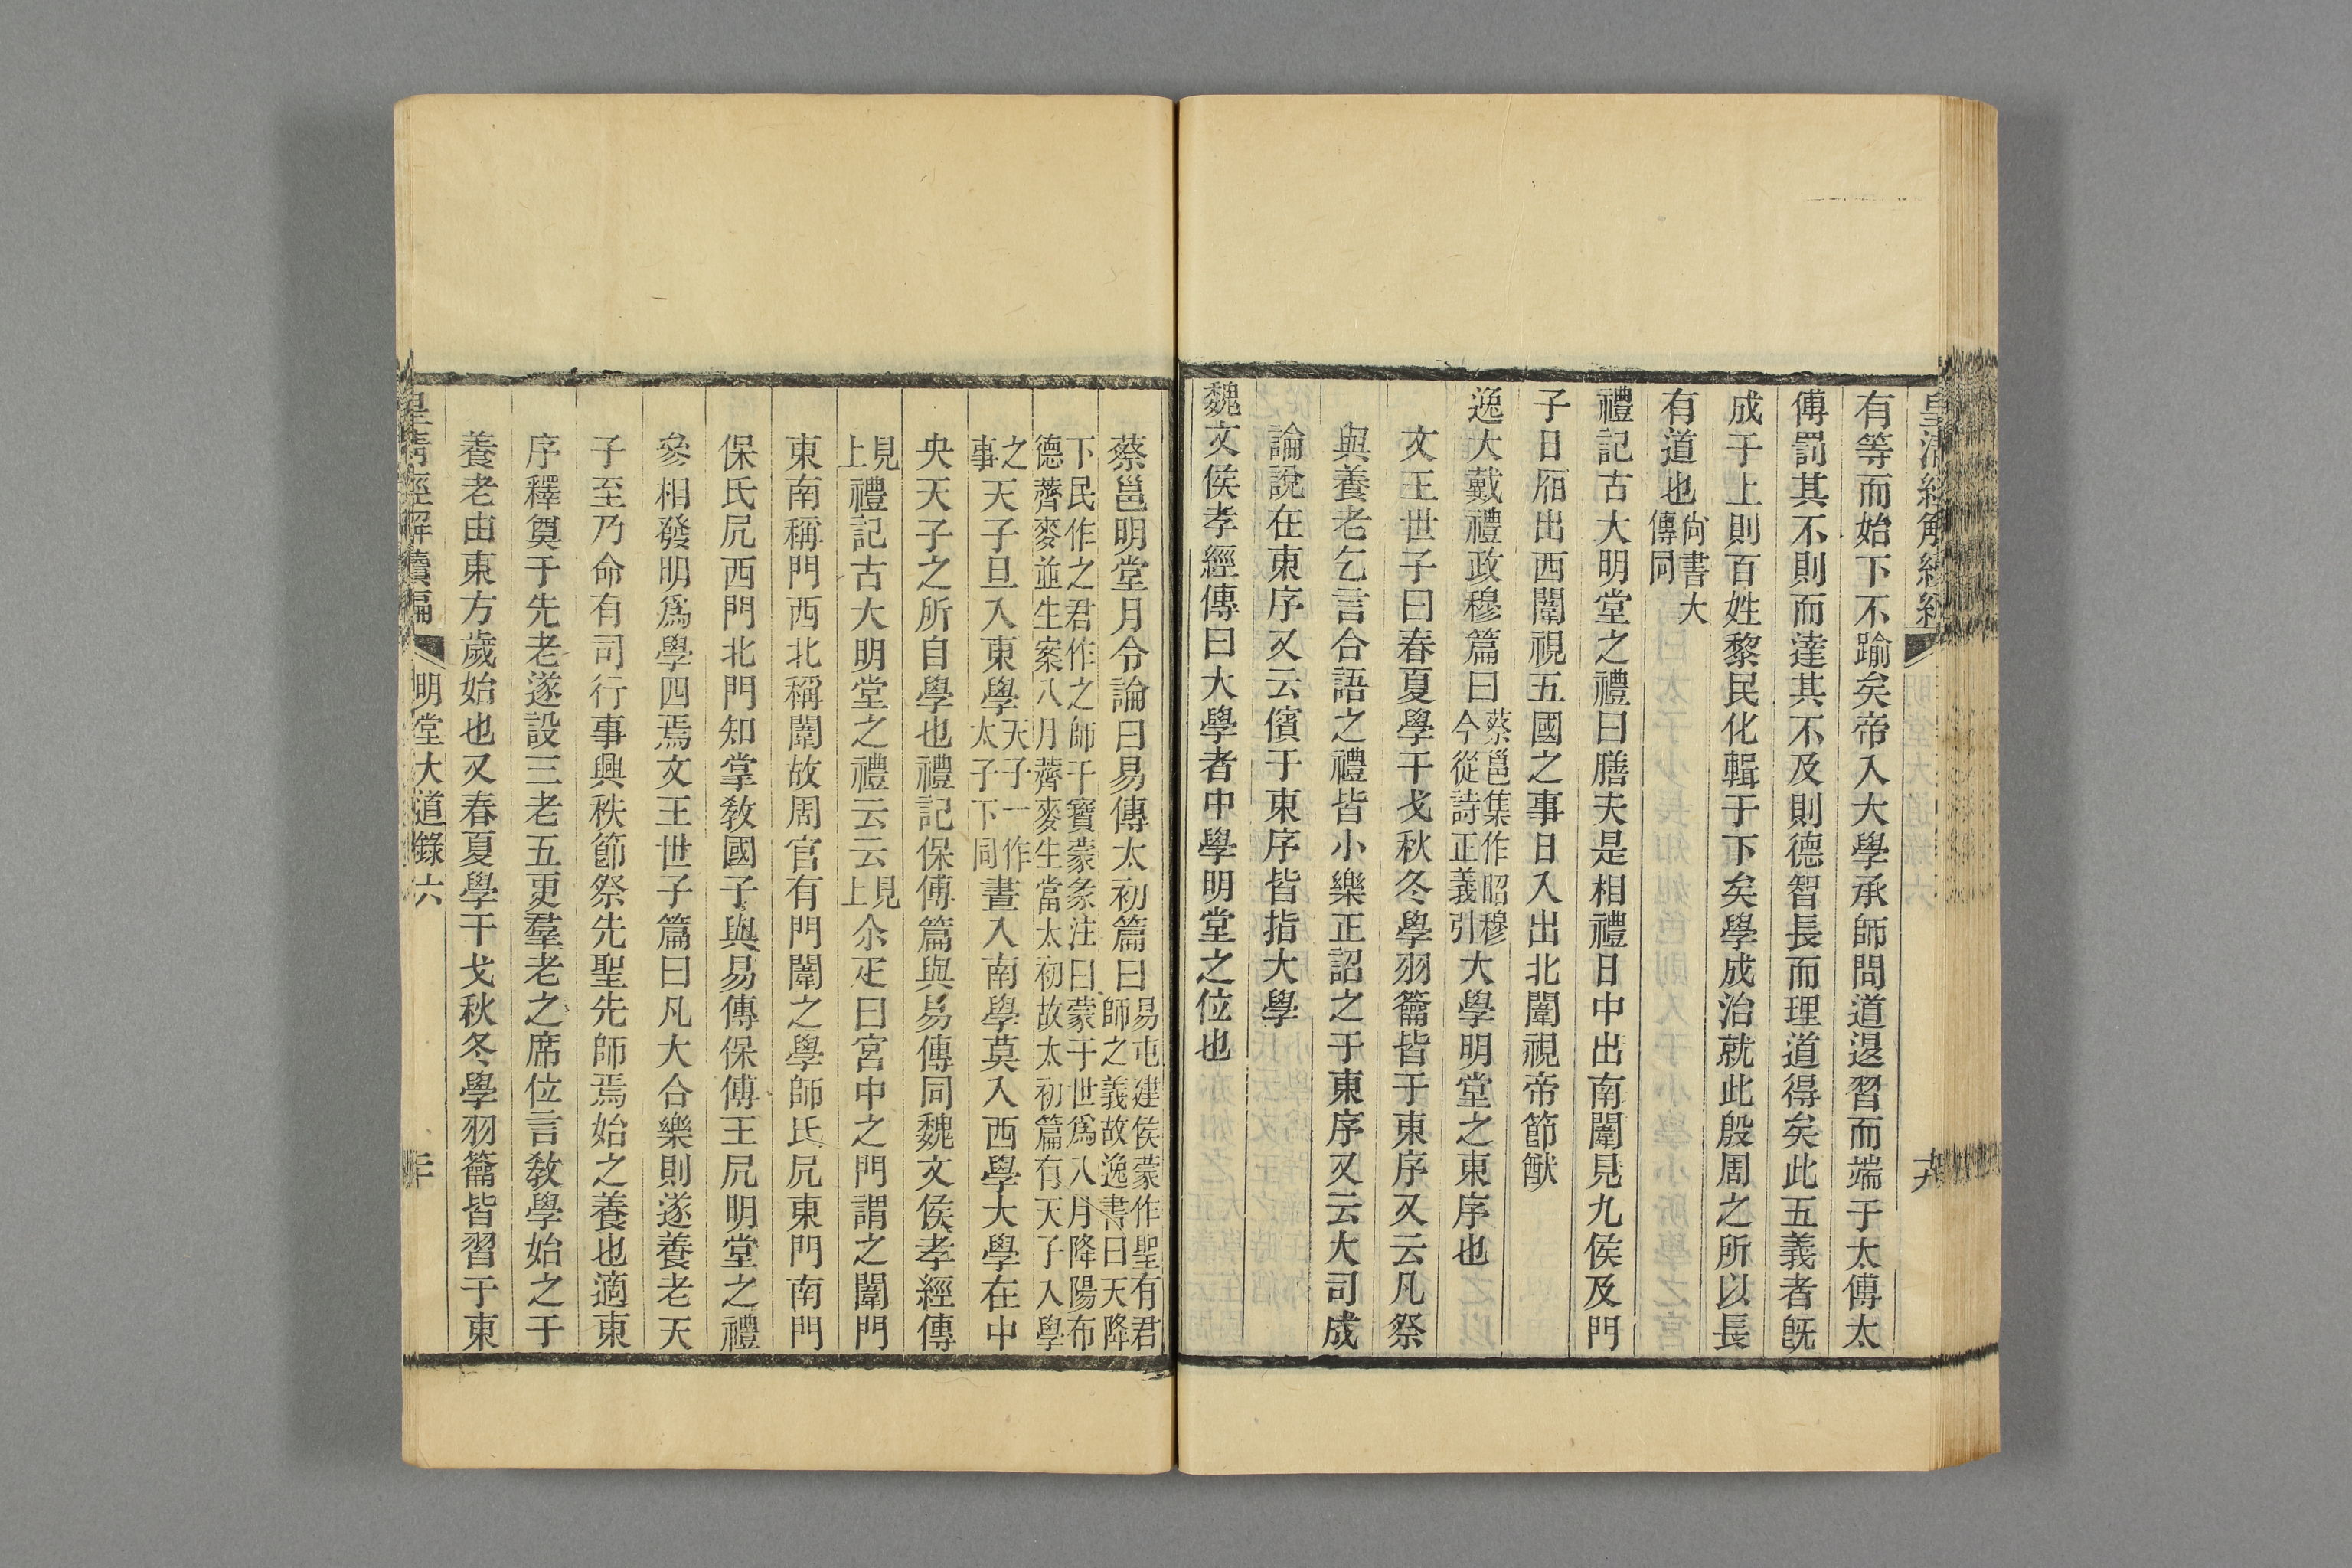 皇清經解續編
十九
有等而始下不踰矣帝入大學承師問道退習而端于太傅太
傅罰其不則而達其不及則德智長而理道得矣此五義者旣
成于上則百姓黎民化輯于下矣學成治就此殷周之所以長
有道也尙書大傳同
禮記古大明堂之禮曰膳夫是相禮日中出南闈見九侯及門
子日𢊍出西闈視五國之事日入出北闈視帝節猷
逸大戴禮政穆篇曰蔡邕集作昭穆今從詩正義引大學明堂之東序也
文王世子曰春夏學干戈秋冬學羽籥皆于東序又云凡祭
與養老乞言合語之禮皆小樂正詔之于東序又云大司成
論說在東序又云儐于東序皆指大學
魏文侯孝經傳曰大學者中學明堂之位也
蔡邕明堂月令論曰易傳太初篇曰易屯建侯蒙作聖有君師之義故逸書曰天降
下民作之君作之師干寶蒙彖注曰蒙于世爲八月降陽布德薺麥並生案八月薺麥生當太初故太初篇有天子入學
之事天子旦入東學天子一作太子下同晝入南學莫入西學大學在中
央天子之所自學也禮記保傅篇與易傳同魏文侯孝經傳
見上禮記古大明堂之禮云云見上尒疋曰宮中之門謂之闈門
東南稱門西北稱闈故周官有門闈之學師氏凥東門南門
保氏凥西門北門知掌敎國子與易傳保傅王凥明堂之禮
參相發明爲學四焉文王世子篇曰凡大合樂則遂養老天
子至乃命有司行事興秩節祭先聖先師焉始之養也適東
序釋奠于先老遂設三老五更羣老之席位言敎學始之于
養老由東方歲始也又春夏學干戈秋冬學羽籥皆習于東
皇清經解續編
明堂大道錄六
二十